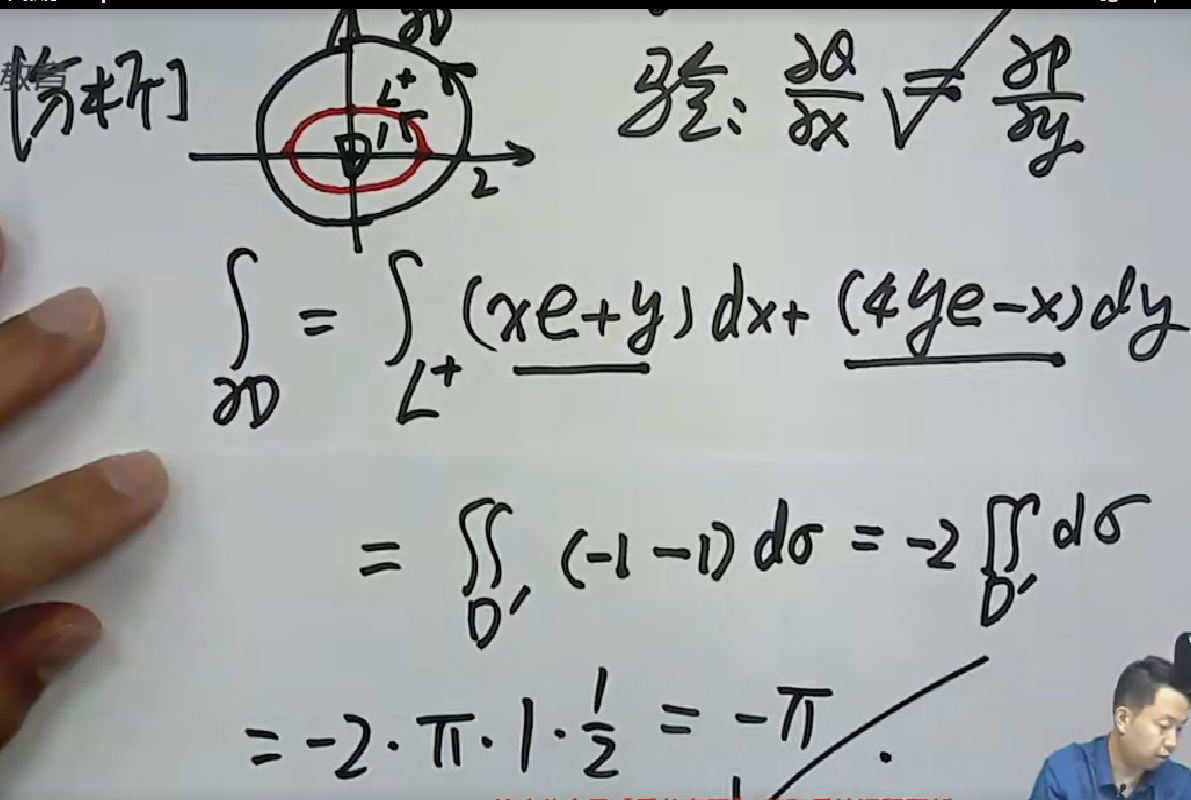 [分析]
∂D
L⁺
D'
2
验: ∂Q/∂x = ∂P/∂y
∫_{∂D} = ∫_{L⁺} (xe+y)dx+(4ye−x)dy
= ∬_{D'} (-1-1)dσ = -2∬_{D'} dσ
= -2·π·1·1/2 = -π.
教育